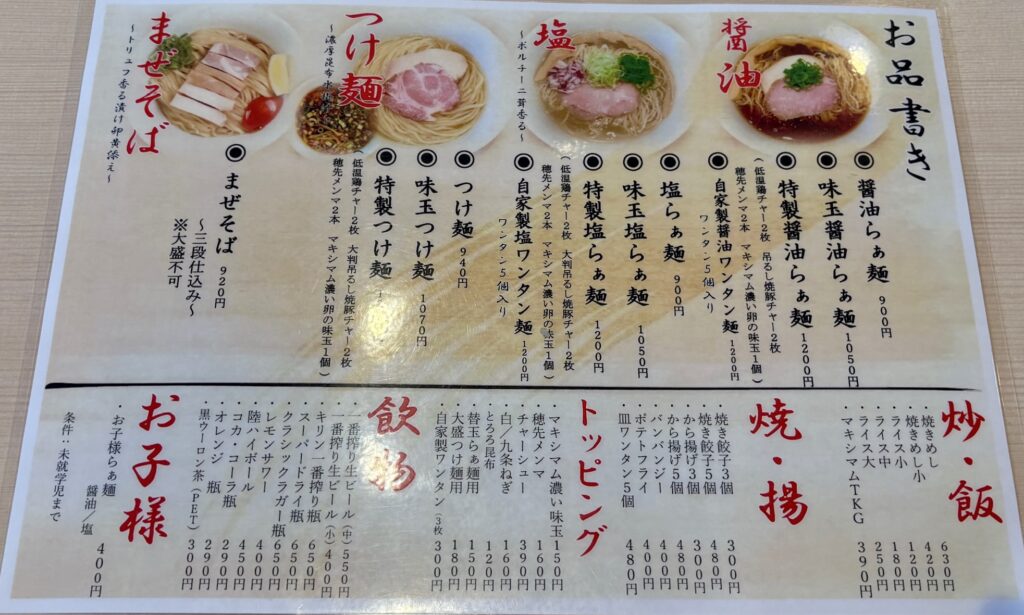 お品書き
醤油
◉醤油らぁ麺 900円
◉味玉醤油らぁ麺 1050円
◉特製醤油らぁ麺 1200円
(低温鶏チャー2枚 吊るし焼豚チャー2枚
穂先メンマ2本 マキシマム濃い卵の味玉1個)
◉自家製醤油ワンタン麺 1200円
ワンタン5個入り
塩
~ポルチーニ茸香る~
◉塩らぁ麺 900円
◉味玉塩らぁ麺 1050円
◉特製塩らぁ麺 1200円
(低温鶏チャー2枚 大判吊るし焼豚チャー2枚
穂先メンマ2本 マキシマム濃い卵の味玉1個)
◉自家製塩ワンタン麺 1200円
ワンタン5個入り
つけ麺
~濃厚昆布水
◉つけ麺 940円
◉味玉つけ麺 1070円
◉特製つけ麺
(低温鶏チャー2枚 大判吊るし焼豚チャー2枚
穂先メンマ2本 マキシマム濃い卵の味玉1個)
まぜそば
~トリュフ香る漬け卵黄添え~
◉まぜそば 920円
~三段仕込み~
※大盛不可
炒・飯
・焼きめし 630円
・焼きめし小 420円
・ライス小 120円
・ライス中 180円
・ライス大 250円
・マキシマムTKG 390円
焼・揚
・焼き餃子3個 300円
・焼き餃子5個 480円
・から揚げ3個 300円
・から揚げ5個 480円
・バンバンジー 400円
・ポテトフライ 400円
・皿ワンタン5個 480円
トッピング
・マキシマム濃い味玉 150円
・穂先メンマ 160円
・チャーシュー 390円
・白/九条ねぎ 160円
・とろろ昆布 120円
・替玉らぁ麺用 150円
・大盛つけ麺用 180円
・自家製ワンタン(3枚) 300円
飲物
・一番搾り生ビール(中) 550円
・一番搾り生ビール(小) 400円
・キリン一番搾り瓶 650円
・スーパードライ瓶 650円
・クラシックラガー瓶 650円
・レモンサワー 400円
・陸ハイボール 450円
・コカ・コーラ瓶 290円
・オレンジ 瓶 290円
・黒ウーロン茶(PET) 300円
お子様
・お子様らぁ麺
醤油/塩 400円
条件:未就学児まで